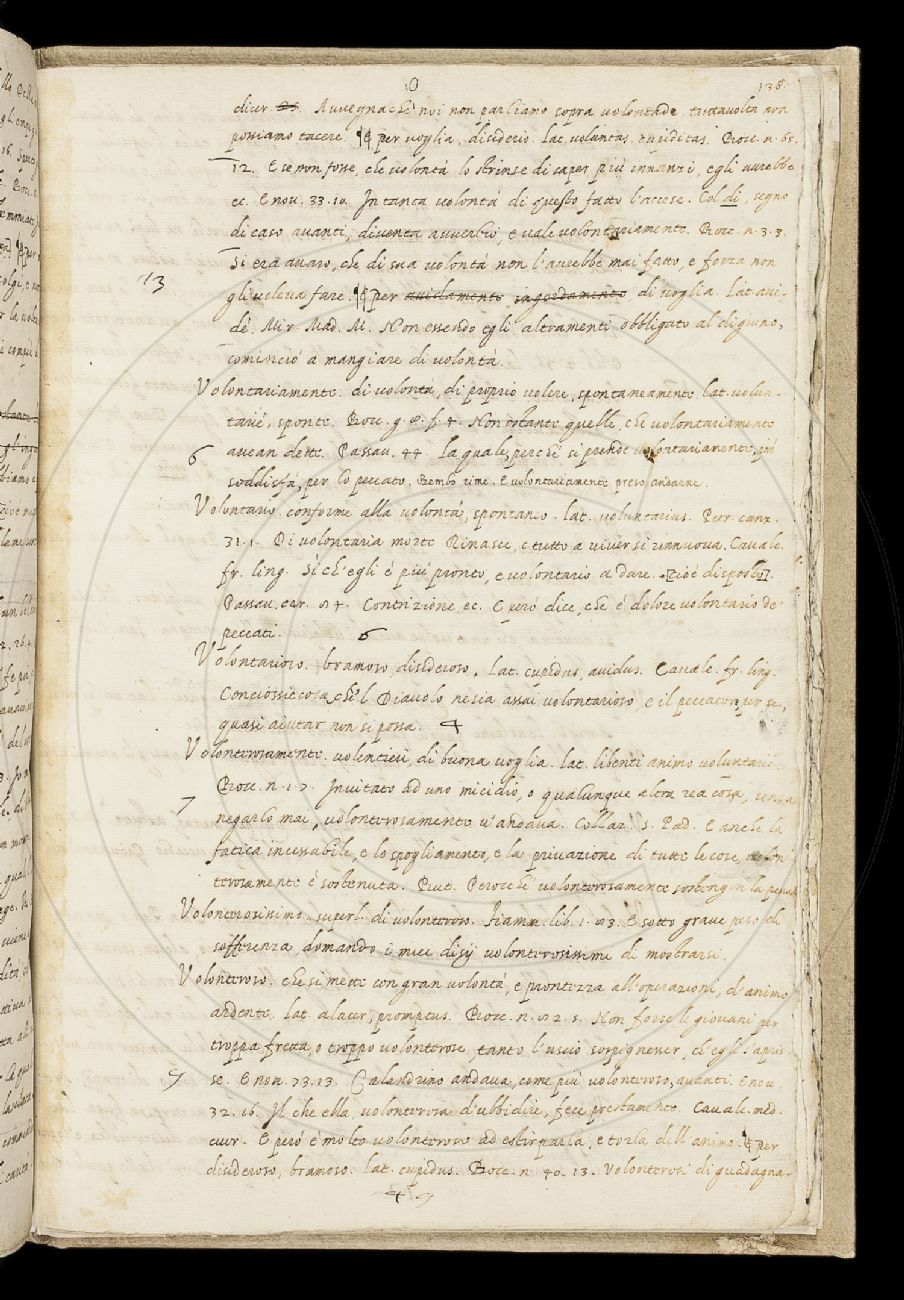 O 138.
dicer. Avvegnachè noi non parliamo sopra volontade tuttavolta non
possiamo tacere. ¶ per voglia, disiderio. Lat. voluntas, cupiditas. Bocc. n. 65.
12. E se non fosse, che volontà lo strinse di saper più innanzi, egli avrebbe
ec. E nov. 33. 10. In tanta volontà di questo fatto l'accese. Col di, segno
di caso avanti, diventa avverbio, e vale volontariamente. Bocc. n. 3. 3.
Si era avaro, che di sua volontà non l'avrebbe mai fatto, e forza non
13
gli voleva fare. ¶ per avidamente ingordamente di voglia. Lat. avi-
dè. Mir. Mad. M. Non essendo egli altramenti obbligato al digiuno,
cominciò a mangiare di volontà.
Volontariamente. di volontà, di proprio volere, spontaneamente. lat. volun-
tariè, sponte. Bocc. g. 8. f. 4. Non ostante quelle, che volontariamente
6 avean dette. Passav. 44. La quale, perchè si prende volontariamente, più
soddisfà, per lo peccato. Bembo rime. E volontariamente preso andarne.
Volontario. conforme alla volontà, spontaneo. lat. voluntarius. Petr. canz.
31. 1. Di volontaria morte Rinasce, e tutto a viver si rinnuova. Cavalc.
fr. ling. Sì ch'egli è più pronto, e volontario a dare. [cioè disposto].
Passav. car. 84. Contrizione, ec. E però dice, che è dolore volontario de'
peccati. 6
Volontarioso. bramoso, disideroso. Lat. cupidus, avidus. Cavalc. fr. ling.
Conciossiecosa, che 'l Diavolo ne sia assai volontarioso, e il peccator per se,
quasi aiutar non si possa. 4
Volonterosamente. volentieri, di buona voglia. lat. libenti animo voluntariè.
Bocc. n. 1. 7. Invitato ad uno micidio, o qualunque altra rea cosa, senza
7 negarlo mai, volonterosamente v'andava. Collaz. S. Pad. E anche la
fatica incessabile, e lo spogliamento, e la privazione di tutte le cose, volon
terosamente è sostenuta. But. Perocchè volonterosamente sostengon la pena
Volonterosissimo. superl. di volonteroso. Fiamm. lib. 1. 83. E sotto grave peso di
sofferenza, domando i miei disij volonterosissimi di mostrarsi.
Volonteroso. che si mette con gran volontà, e prontezza all'operazioni, d'animo
ardente. lat. alacer, promptus. Bocc. n. 82. 5. Non forse le giovani per
troppa fretta, o troppo volonterose, tanto l'uscio sospignesser, ch'egli s'apris-
9 se. E nov. 73. 13. Calandrino andava, come più volonteroso, avanti. E nov.
32. 16. Il che ella, volonterosa d'ubbidire, fece prestamente. Cavalc. med.
cuor. E però è molto volonteroso ad estirparla, e torla dell'animo. ¶ per
disideroso, bramoso. Lat. cupidus. Bocc. n. 40. 13. Volonterosi di guadagna-
4 9